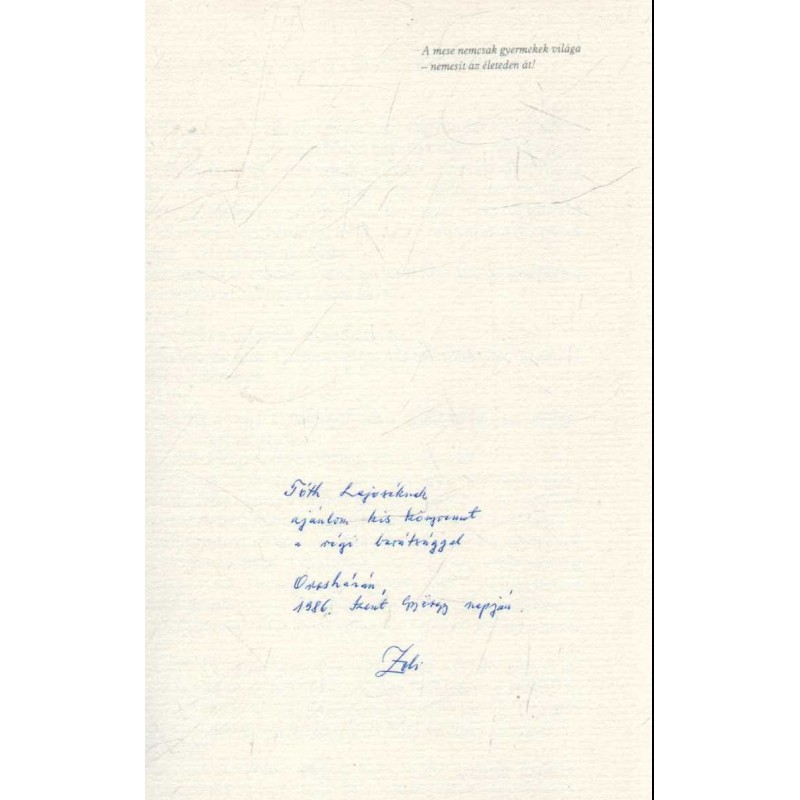 A mese nemcsak gyermekek világa
– nemesít az életeden át!
Tóth Lajoséknak
ajánlom kis könyvemet
a régi barátsággal
Orosházán,
1986. Szent György napján.
Zoli